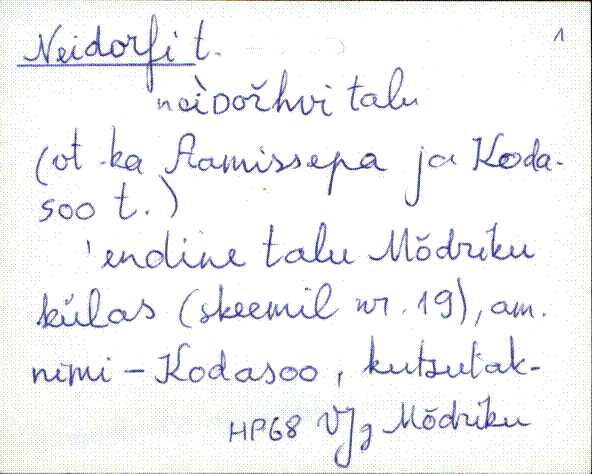 Neidorfi t. 1
neìDožhvi talu
(vt ka Aamissepa ja Koda-
soo t.)
'endine talu Mõdriku
külas (skeemil nr. 19), am.
nimi – Kodasoo, kutsutak-
HP68 VJg Mõdriku